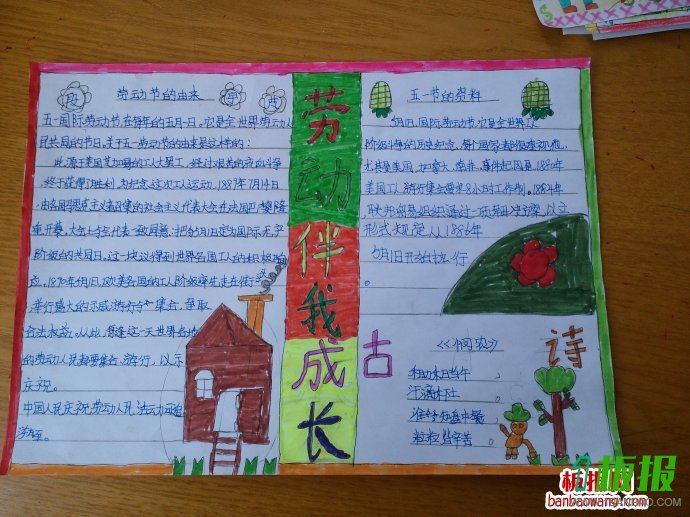 劳动节的由来
五一国际劳动节,在每年的五月一日,它是全世界劳动人
民共同的节日,关于五一劳动节的由来是这样的:
此源于美国芝加哥的工人大罢工,经过艰苦的流血斗争
终于获得了胜利,为纪念这次工人运动,1889年7月14日
由各国马思克主义者召集的社会主义代表大会在法国巴黎隆
重开幕,大会上与会代表一致同意:把5月1日定为国际无产
阶级的共同日。这一决议得到世界各国工人的积极响
应。1890年5月1日,欧美各国的工人阶级率先走在街
举行盛大的示威游行与集会,争取
合法权益。从此,每逢这一天世界各地
的劳动人民都要集会、游行,以示
庆祝。
中国人民庆祝劳动人民
劳动伴我成长
五一节的资料
5月1日,国际劳动节,它是全世界
阶级斗争的历史纪念,每个国家都很重视他,
尤其是美国、加拿大、南非,事件起因是:1880年
美国工人游行集会要求8小时工作制。1884年
形式规定从1886年
5月1日开始执行
。
古诗
《悯农》
锄禾日当午
汗滴禾下土
谁知盘中餐
粒粒皆辛苦
板报
banbaowang.com